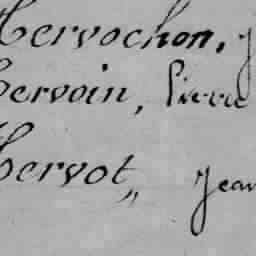 Hervochon, J
Hervoin, Pierre
Hervot,, Jean